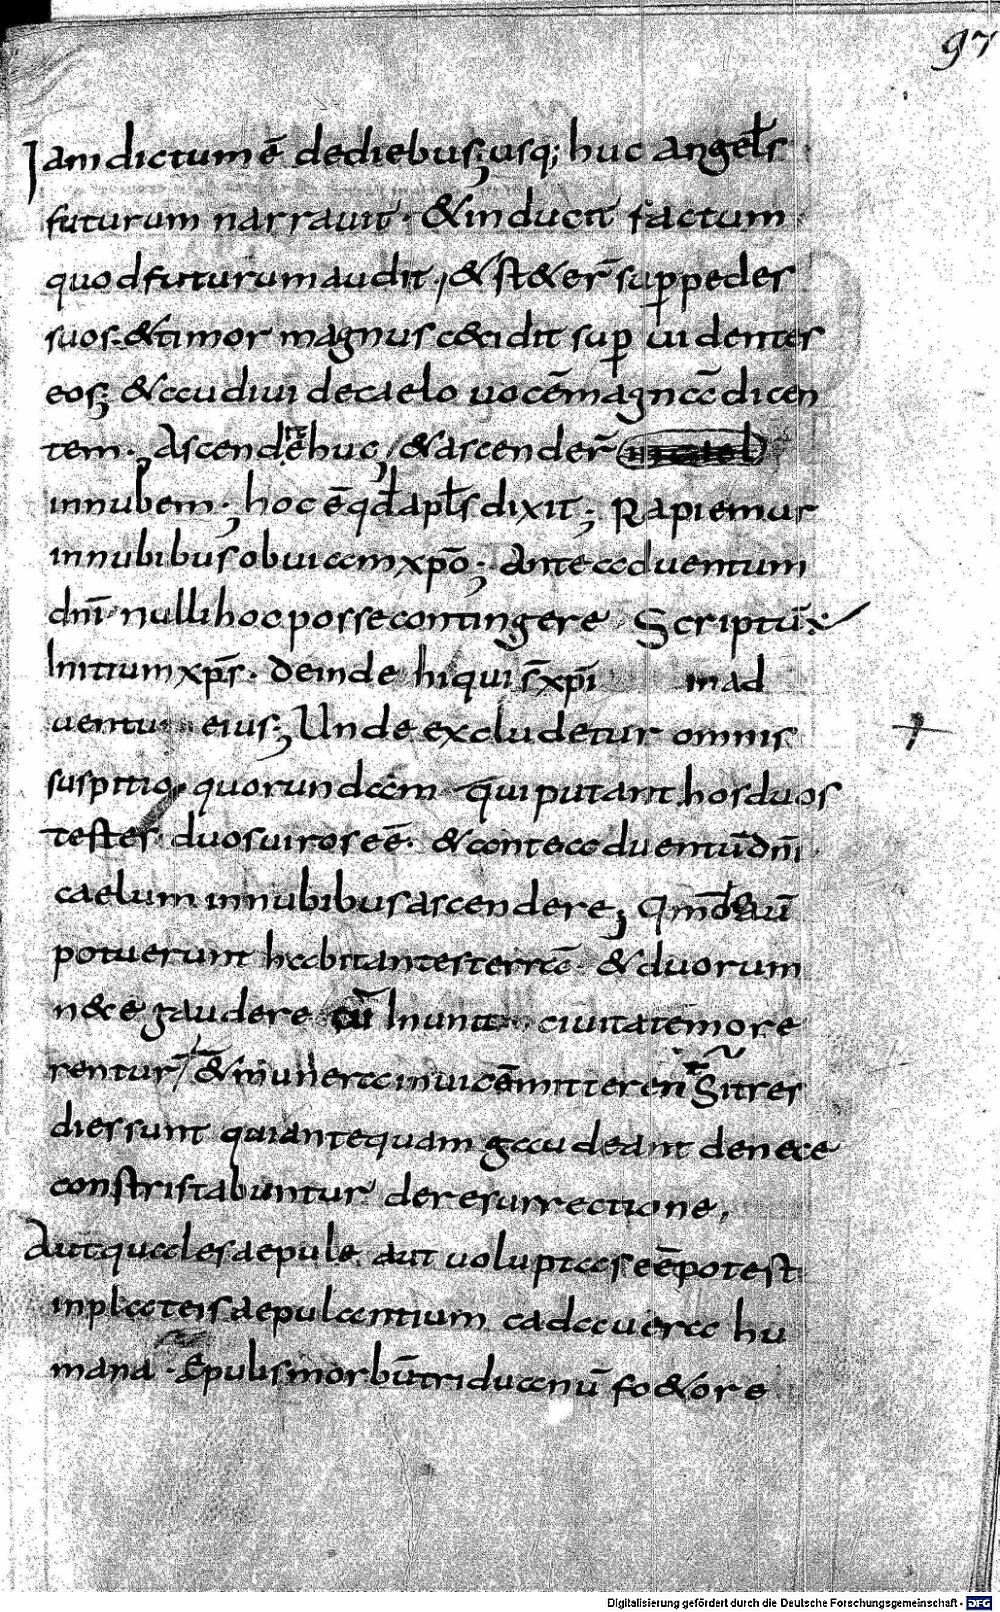 97
Iam dictum ē de diebus; usq; huc angel̄s
futurum narrauit · & inducit factum
quod futurum audit · & st&er̄ sup pedes
suos · & timor magnus cecidit sup uidentes
eos; & audiui de caelo uocē magnā dicen
tem ·, Ascende huc, & ascender̄
in nubem ·, hoc ē qđ apl̄s dixit; Rapiemur
in nubibus obuiam xp̄o ·, Ante aduentum
dn̄i nulli hoc posse contingere · Scriptū
Initium xp̄s · deinde hi qui s̄ xp̄i in ad
uentu eius; Unde excludetur omnis
suspitio, quorundam qui putant hos duos
testes duos uiros eē · & ante aduentū dn̄i
caelum in nubibus ascendere; Qm̄odo aū
potuerunt habitantes terrā · & duorum
nece gaudere cū In una ciuitate more
rentur, & munera inuicē mitteren̄ Si tres
dies sunt qui antequam gaudeant de nece
constristabuntur de resurrectione,
Aut quales aepule aut uoluptas eē potest
in plateis aepulantium cadauera hu
mana · Epulis morbū triduanū foetore
Digitalisierung gefördert durch die Deutsche Forschungsgemeinschaft - DFG